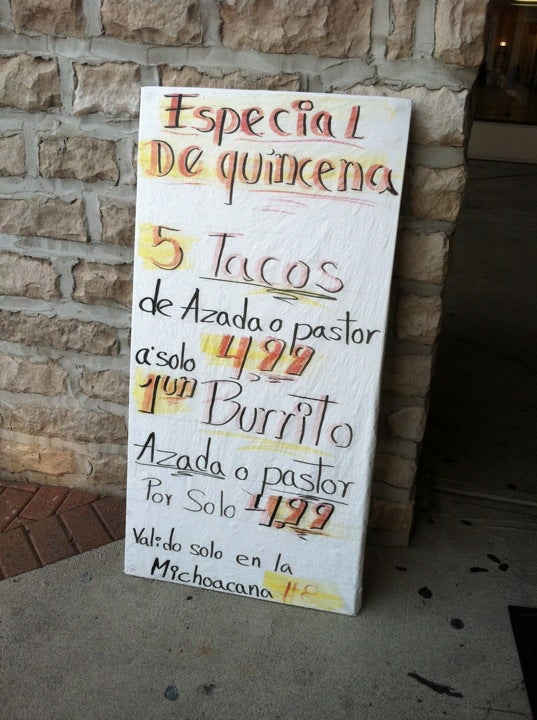 Especial
De quincena
5 Tacos
de Azada o pastor
a solo 4,99
1 un Burrito
Azada o pastor
Por Solo 4,99
Valido solo en la
Michoacana #8